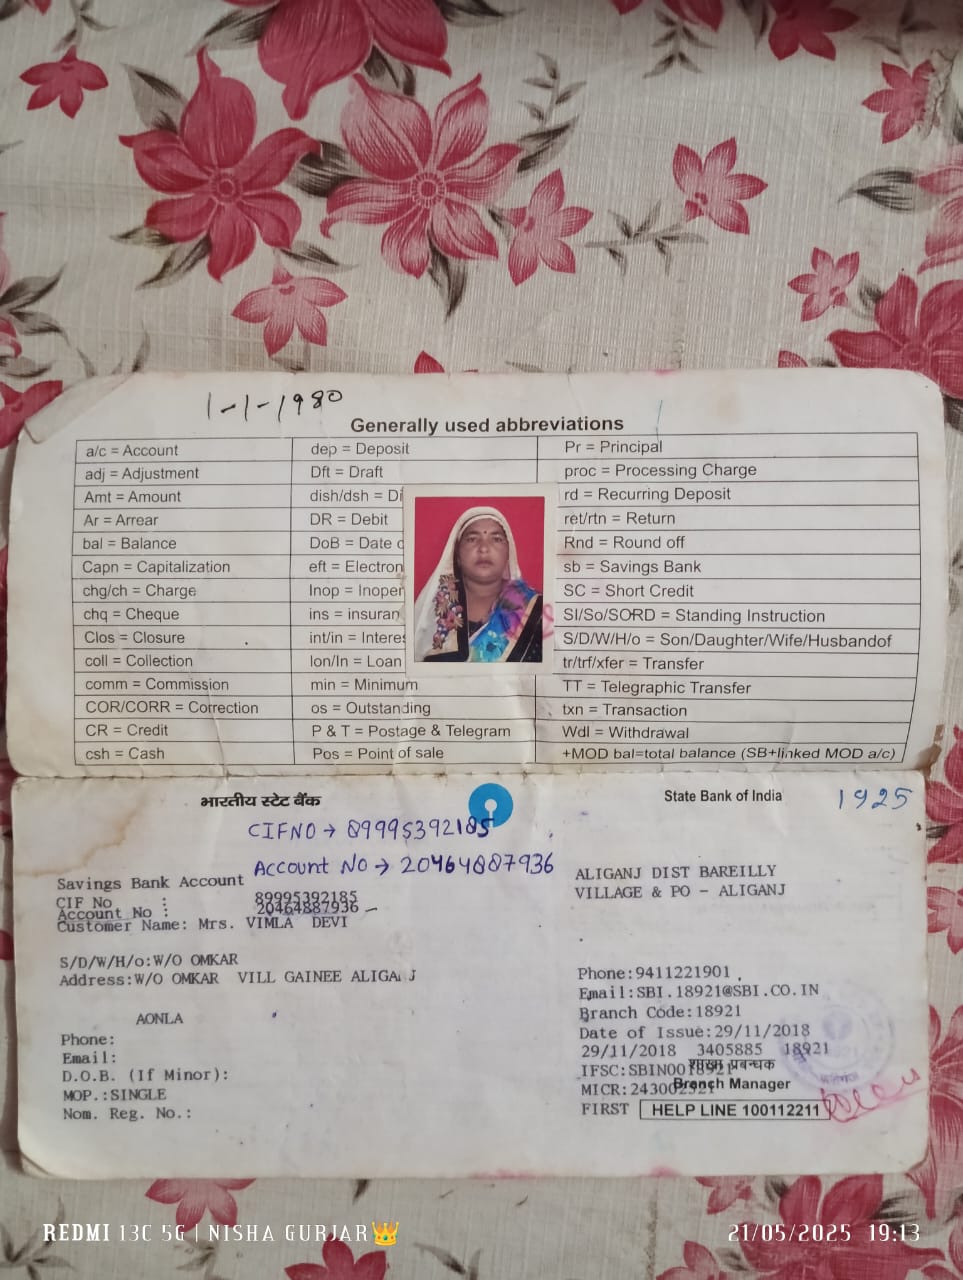 1-1-1980
Generally used abbreviations
a/c = Account
adj = Adjustment
Amt = Amount
Ar = Arrear
bal = Balance
Capn = Capitalization
chg/ch = Charge
chq = Cheque
Clos = Closure
coll = Collection
comm = Commission
COR/CORR = Correction
CR = Credit
csh = Cash
dep = Deposit
Dft = Draft
dish/dsh = Di
DR = Debit
DoB = Date
eft = Electron
Inop = Inoper
ins = insuran
int/in = Interes
lon/In = Loan
min = Minimum
os = Outstanding
P & T = Postage & Telegram
Pos = Point of sale
Pr = Principal
proc = Processing Charge
rd = Recurring Deposit
ret/rtn = Return
Rnd = Round off
sb = Savings Bank
SC = Short Credit
SI/So/SORD = Standing Instruction
S/D/W/H/o = Son/Daughter/Wife/Husbandof
tr/trf/xfer = Transfer
TT = Telegraphic Transfer
txn = Transaction
Wdl = Withdrawal
+MOD bal=total balance (SB+linked MOD a/c)
भारतीय स्टेट बैंक
State Bank of India
1925
CIFNO → 89995392185
Account No → 20464887936
Savings Bank Account
CIF No : 89995392185
Account No : 20464887936
Customer Name: Mrs. VIMLA DEVI
S/D/W/H/o:W/O OMKAR
Address:W/O OMKAR VILL GAINEE ALIGANJ
AONLA
Phone:
Email:
D.O.B. (If Minor):
MOP.:SINGLE
Nom. Reg. No.:
ALIGANJ DIST BAREILLY
VILLAGE & PO - ALIGANJ
Phone:9411221901
Email:SBI.18921@SBI.CO.IN
Branch Code:18921
Date of Issue:29/11/2018
29/11/2018 3405885 18921
IFSC:SBIN0018921
शाखा प्रबन्धक
MICR:243002521
Branch Manager
FIRST HELP LINE 100112211
REDMI 13C 5G | NISHA GURJAR👑
21/05/2025 19:13